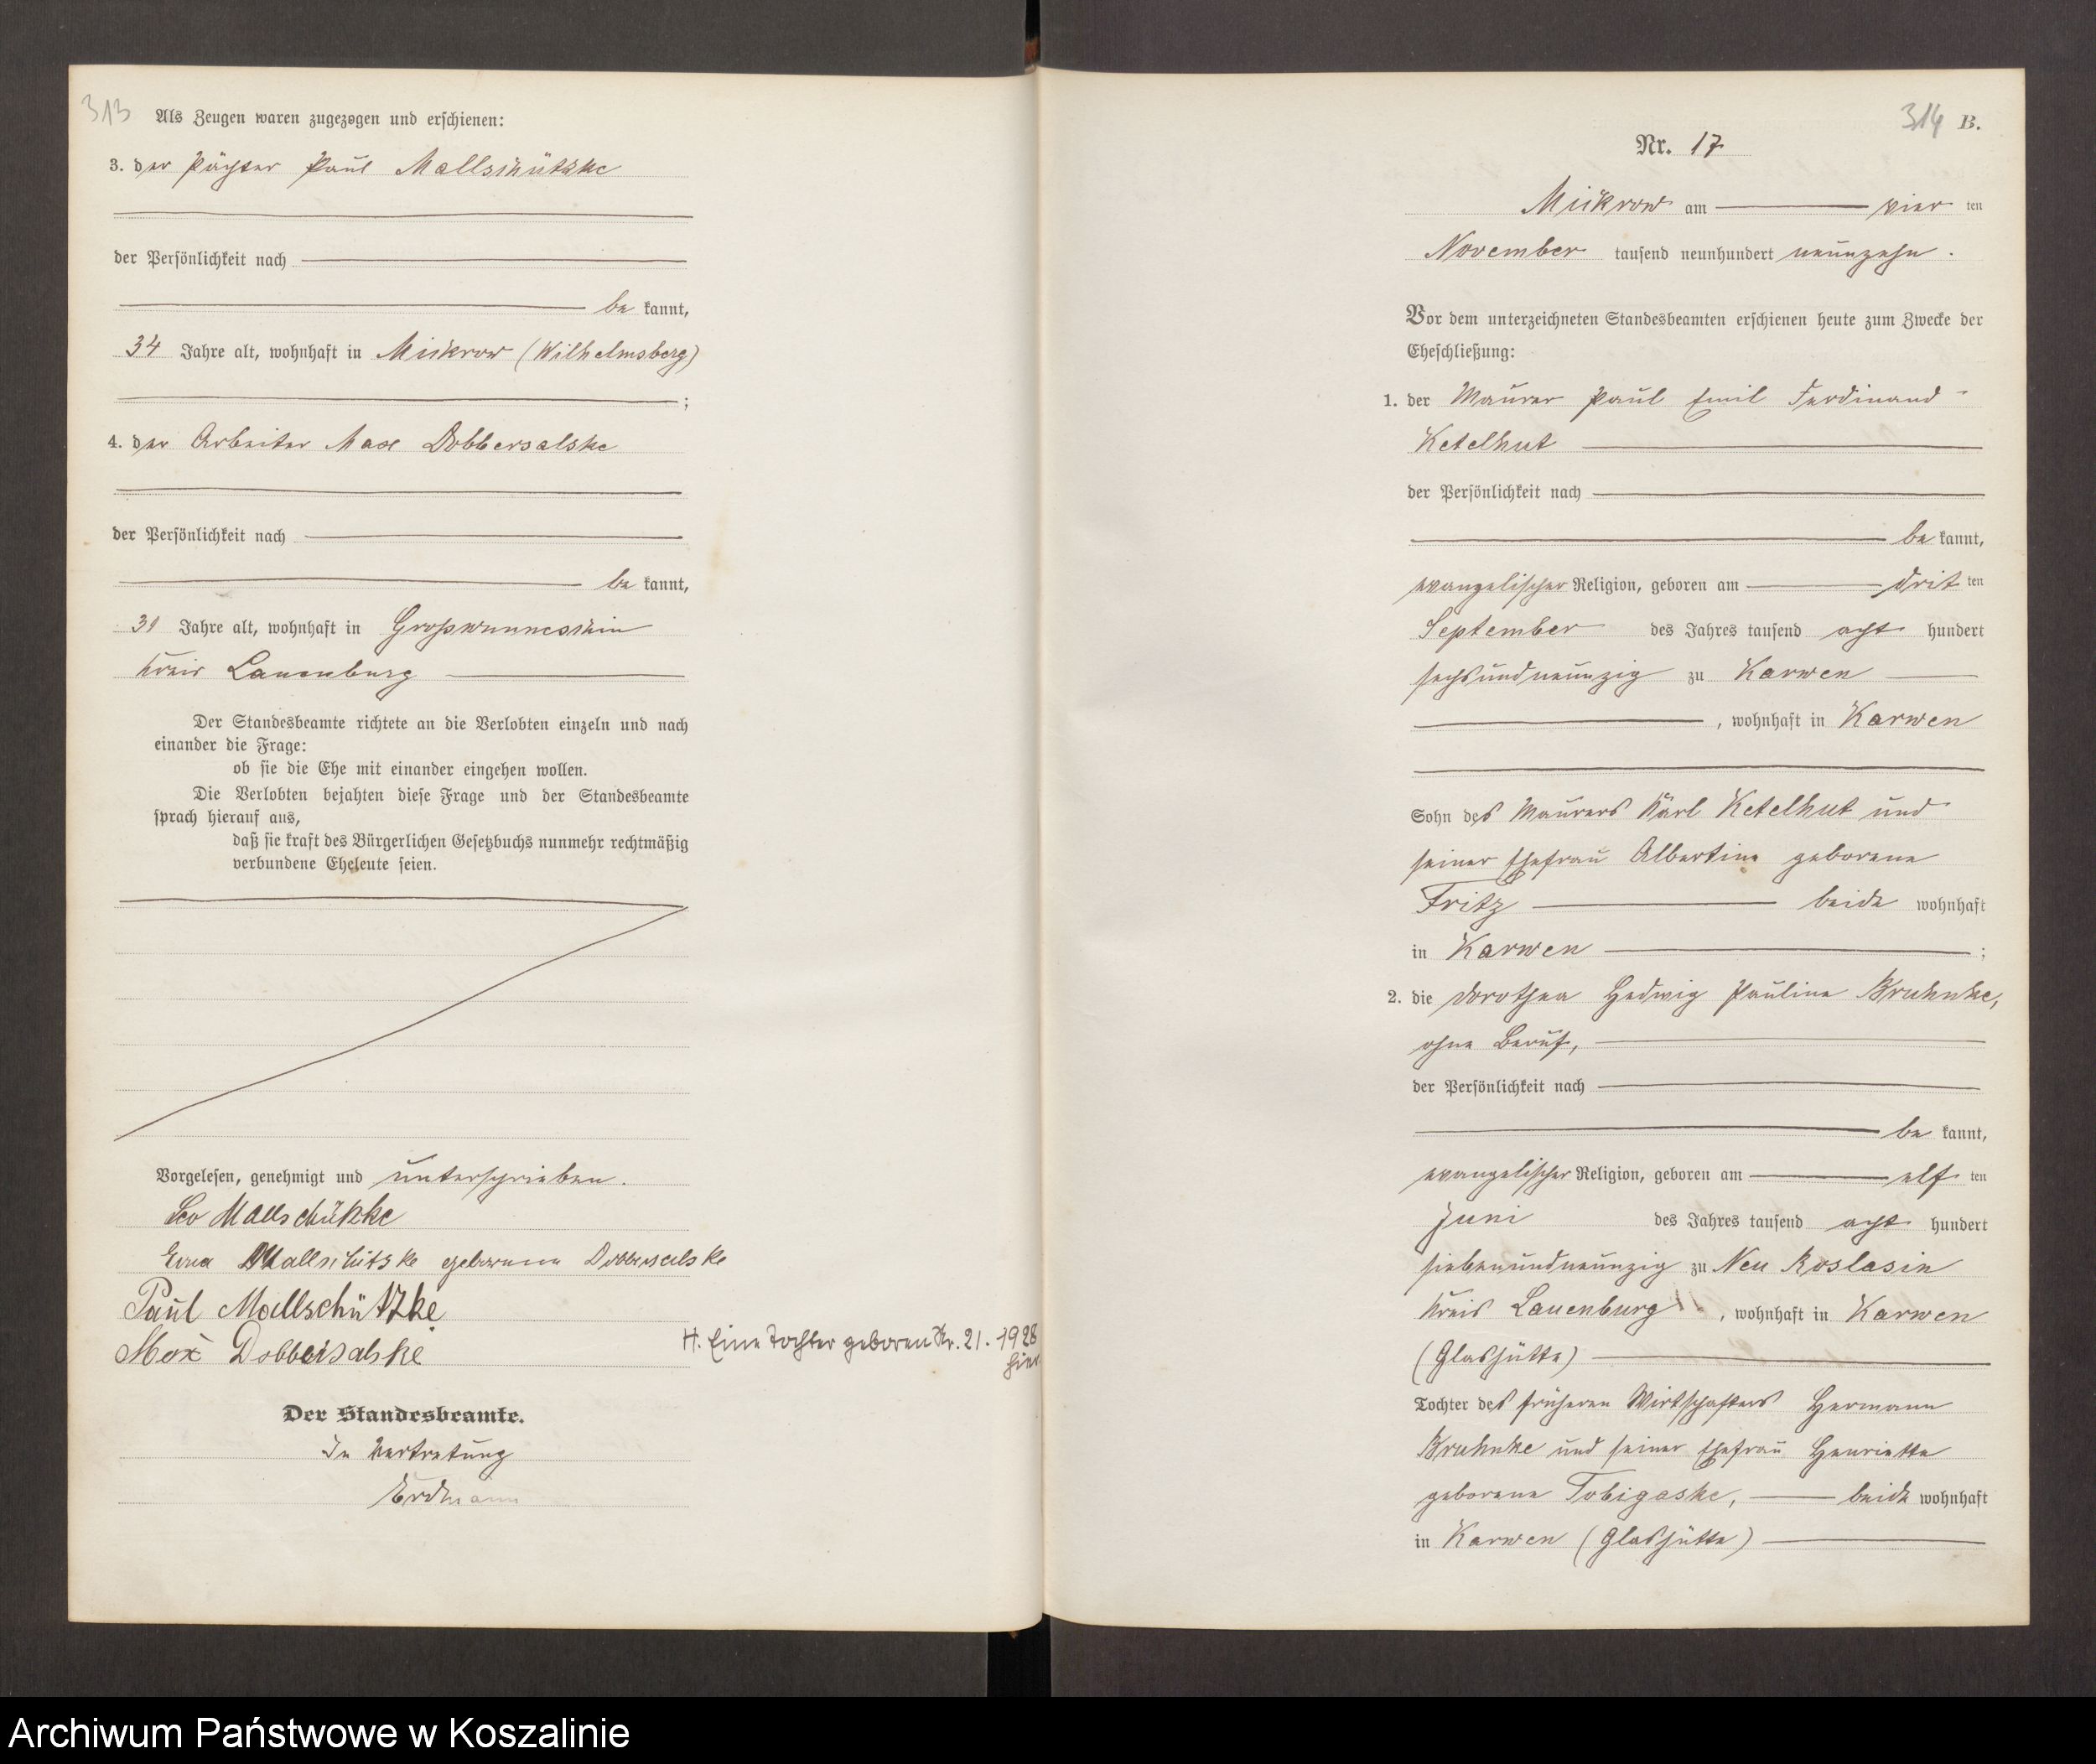 313
Als Zeugen waren zugezogen und erschienen:
3. der Pächter Paul Mallschützke
der Persönlichkeit nach
be kannt,
34 Jahre alt, wohnhaft in Mickrow (Wilhelmsberg)
;
4. der Arbeiter Max Dobbersalske
der Persönlichkeit nach
be kannt,
31 Jahre alt, wohnhaft in Großwunneschin
Kreis Lauenburg
Der Standesbeamte richtete an die Verlobten einzeln und nach
einander die Frage:
ob sie die Ehe mit einander eingehen wollen.
Die Verlobten bejahten diese Frage und der Standesbeamte
sprach hierauf aus,
daß sie kraft des Bürgerlichen Gesetzbuchs nunmehr rechtmäßig
verbundene Eheleute seien.
Vorgelesen, genehmigt und unterschrieben.
Leo Mallschützke
Erna Mallschützke geborene Dobbersalske
Paul Mallschützke
Max Dobbersalske
H. Eine Tochter geboren Nr. 21. 1928
hier
Der Standesbeamte.
In Vertretung
Erdmann
314 B.
Nr. 17
Mickrow am vier ten
November tausend neunhundert neunzehn.
Vor dem unterzeichneten Standesbeamten erschienen heute zum Zwecke der
Eheschließung:
1. der Maurer Paul Emil Ferdinand
Ketelhut
der Persönlichkeit nach
be kannt,
evangelischer Religion, geboren am drit ten
September des Jahres tausend acht hundert
sechsundneunzig zu Karwen
, wohnhaft in Karwen
Sohn des Maurers Karl Ketelhut und
seiner Ehefrau Albertine geborene
Fritz beide wohnhaft
in Karwen ;
2. die Dorothea Hedwig Pauline Bruhnke,
ohne Beruf,
der Persönlichkeit nach
be kannt,
evangelischer Religion, geboren am elf ten
Juni des Jahres tausend acht hundert
siebenundneunzig zu Neu Roslasin
Kreis Lauenburg , wohnhaft in Karwen
(Glashütte)
Tochter des früheren Wirtschafters Hermann
Bruhnke und seiner Ehefrau Henriette
geborene Tobigaske, beide wohnhaft
in Karwen (Glashütte)
Archiwum Państwowe w Koszalinie